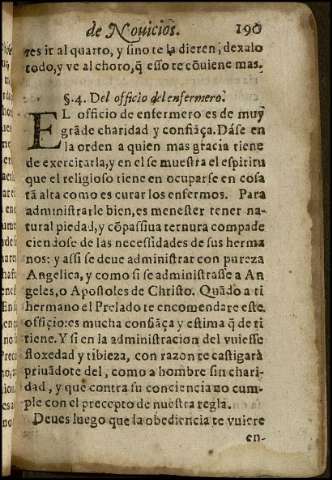 de Novicios. 190
res ir al quarto, y sino te la dieren, dexalo
todo, y ve al choro, q̃ esso te cõuiene mas.
§. 4. Del officio del enfermero.
EL officio de enfermero es de muy
grãde charidad y confiãça. Dáse en
la orden a quien mas gracia tiene
de exercitarla, y en el se muestra el espiritu
que el religioso tiene en ocuparse en cosa
tã alta como es curar los enfermos. Para
administrarle bien, es menester tener na-
tural piedad, y cõpassiua ternura compade
ciendose de las necessidades de sus herma
nos: y assi se deue administrar con pureza
Angelica, y como si se administrasse a An
geles, o Apostoles de Christo. Quãdo a ti
hermano el Prelado te encomendare este
officio: es mucha confiãça y estima q̃ de ti
tiene. Y si en la administracion del vuiesse
floxedad y tibieza, con razon te castigarà
priuãdote del, como a hombre sin chari-
dad, y que contra su conciencia no cum-
ple con el precepto de nuestra regla.
Deues luego que la obediencia te vuiere
en-